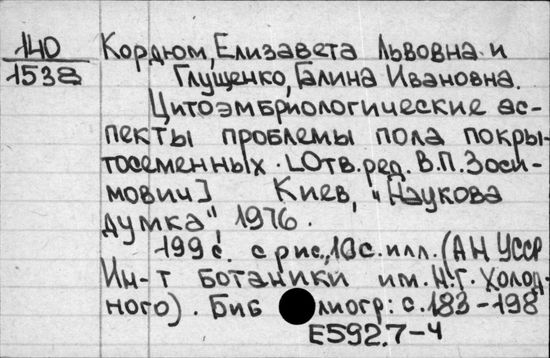 140 Кордюм, Елизавета Львовна и
1538 Глущенко, Галина Ивановна.
Цитоэмбриологические ас-
пекты проблемы пола покры-
тосеменных. [Отв. ред. В.П. Зоси-
мович] Киев, "Наукова
думка", 1976.
199 с. с рис., 10 с. илл. (АН УССР
Ин-т ботаники им. Н.Г. Холод-
ного). Библиогр: с. 183-198
Е592.7-4